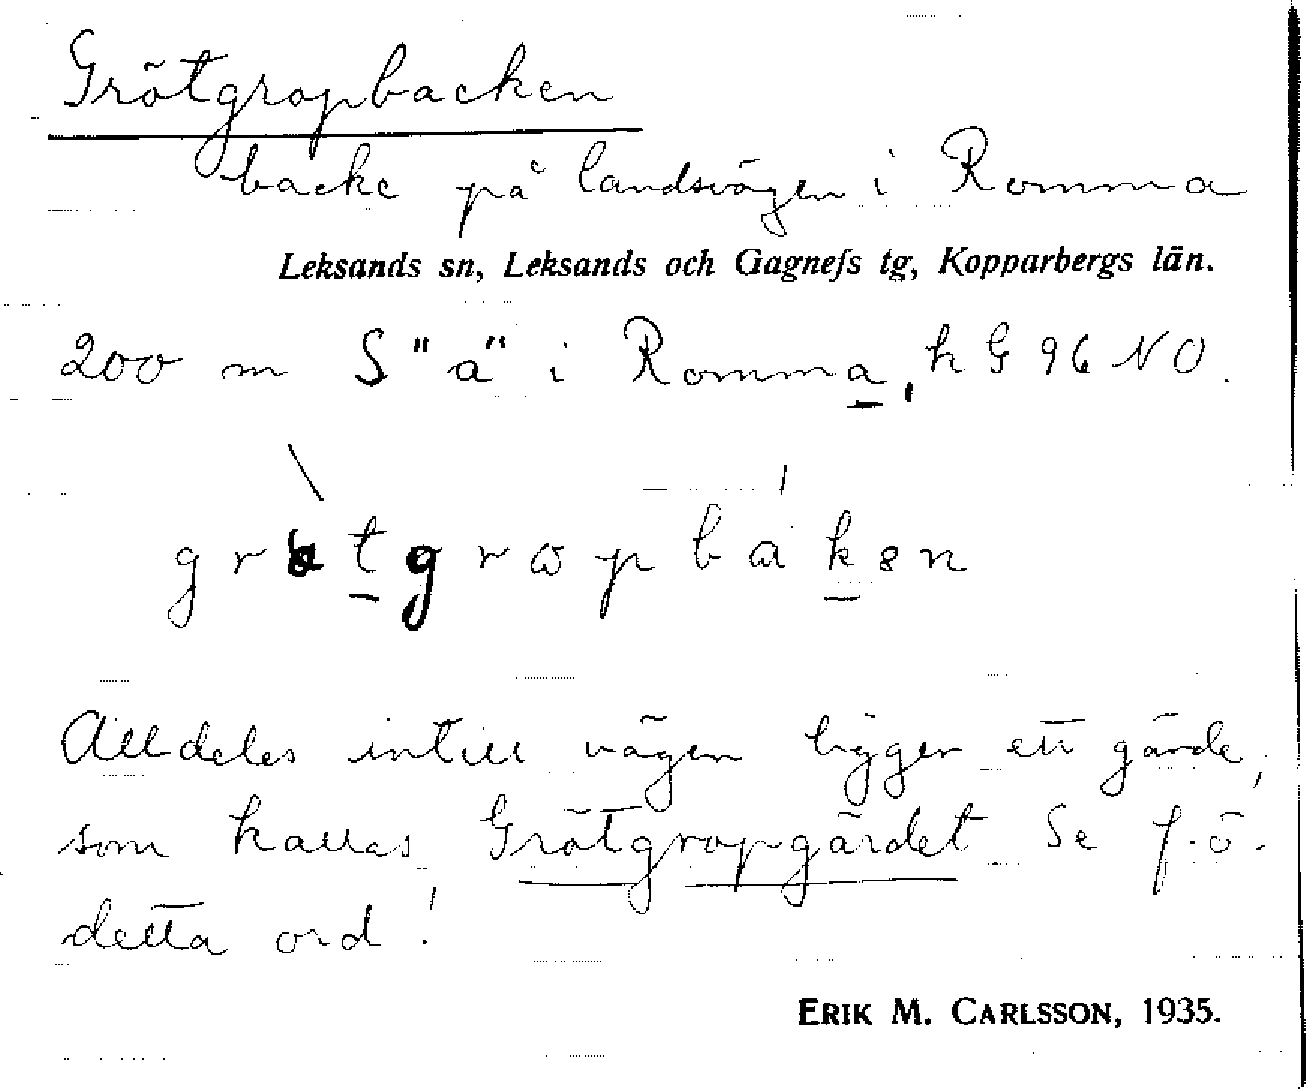 Grötgropbacken
backe på landsvägen i Romma
Leksands sn, Leksands och Gagnefs tg, Kopparbergs län.
200 m S "a" i Romma, h G 96 NO.
Alldeles intill vägen ligger ett gärde,
som kallas Grötgropgärdet Se f.ö.
detta ord!
ERIK M. CARLSSON, 1935.